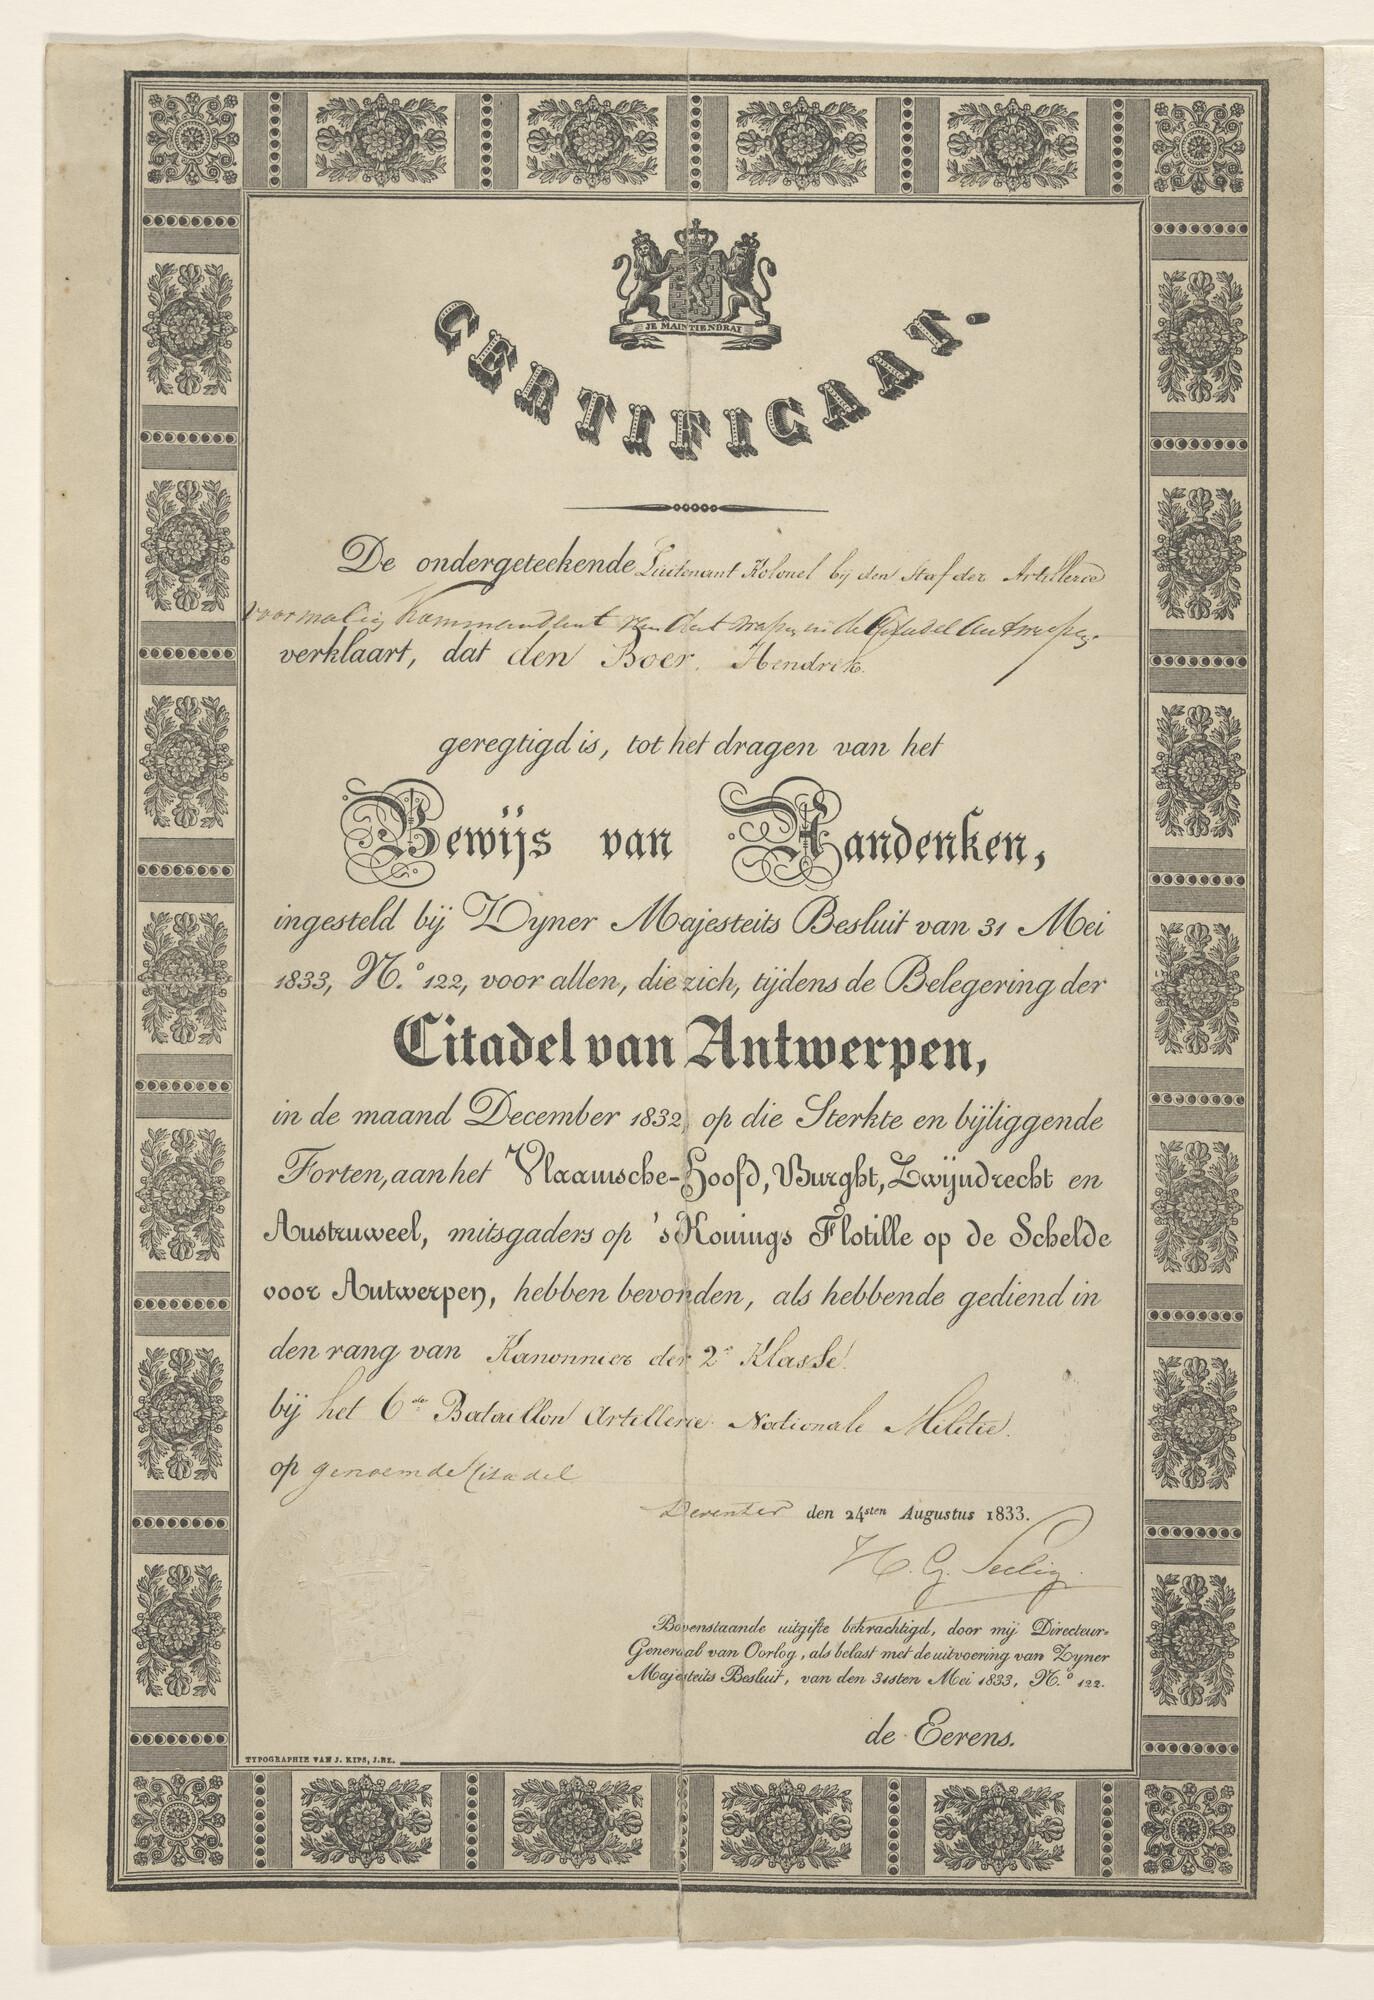 JE MAINTIENDRAI
CERTIFICAAT.
De ondergeteekende Luitenant Kolonel bij den Staf der Artillerie
voormalig Kommandant van dat wapen in de Citadel Antwerpen
verklaart, dat den Boer, Hendrik.
geregtigd is, tot het dragen van het
Bewijs van Aandenken,
ingesteld bij Zyner Majesteits Besluit van 31 Mei
1833, N.º 122, voor allen, die zich, tijdens de Belegering der
Citadel van Antwerpen,
in de maand December 1832, op die Sterkte en bijliggende
Forten, aan het Vlaamsche-Hoofd, Burght, Zwijndrecht en
Austruweel, mitsgaders op 's Konings Flotille op de Schelde
voor Antwerpen, hebben bevonden, als hebbende gediend in
den rang van Kanonnier der 2e Klasse.
bij het 6de Bataillon Artillerie Nationale Militie.
op genoemde Citadel
Deventer den 24sten Augustus 1833.
H. G. Seelig
Bovenstaande uitgifte bekrachtigd, door mij Directeur-
Generaal van Oorlog, als belast met de uitvoering van Zyner
Majesteits Besluit, van den 31sten Mei 1833, N.º 122.
de Eerens.
TYPOGRAPHIE VAN J. KIPS, J.HZ.